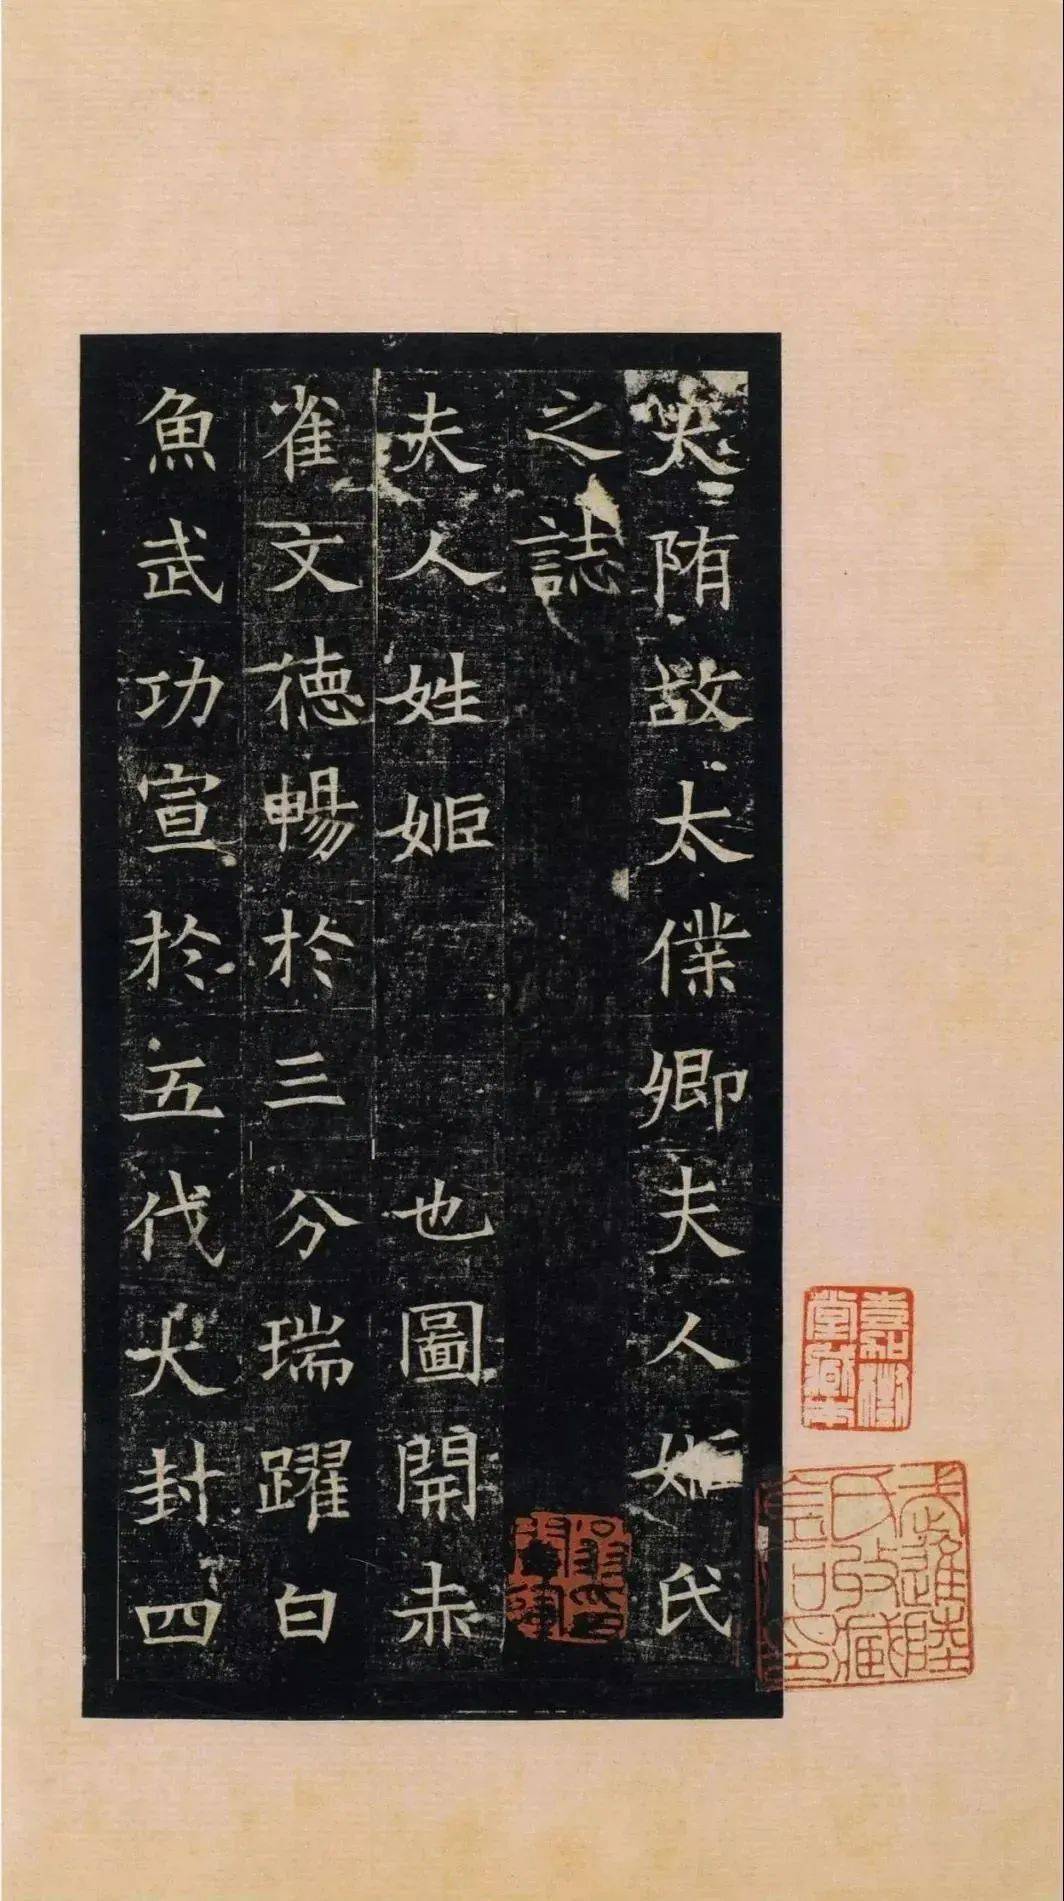 大陏故太僕卿夫人姬氏
之誌
夫人姓姬 也圖開赤
雀文德暢於三分瑞躍白
魚武功宣於五伐大封四